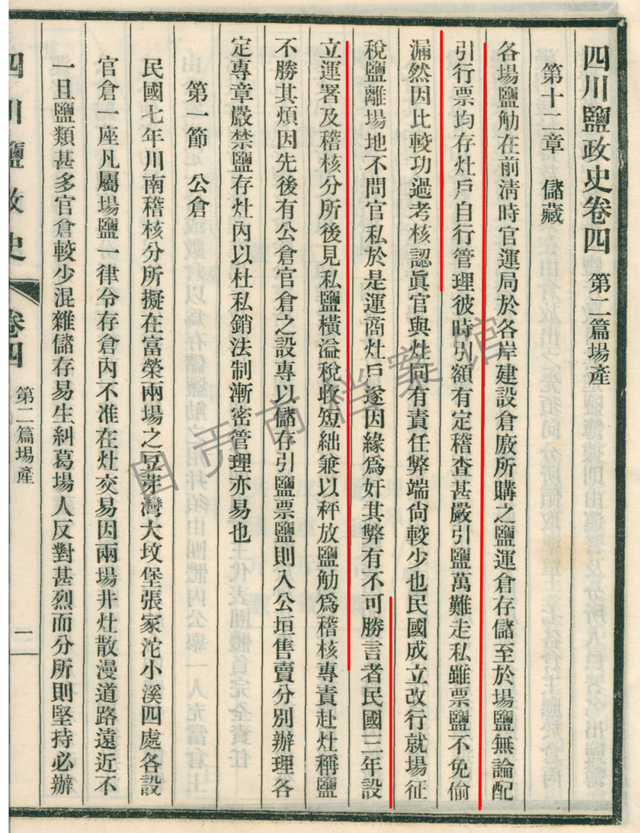 四川鹽政史卷四 第二篇場產
第十二章 儲藏
各場鹽觔在前淸時官運局於各岸建設倉廒所購之鹽運倉存儲至於場鹽無論配
引行票均存灶戶自行管理彼時引額有定稽查甚嚴引鹽萬難走私雖票鹽不免偷
漏然因比較功過考核認眞官與灶同有責任弊端尙較少也民國成立改行就場征
稅鹽離場地不問官私於是運商灶戶遂因緣爲奸其弊有不可勝言者民國三年設
立運署及稽核分所後見私鹽橫溢稅收短絀兼以秤放鹽觔爲稽核專責赴灶稱鹽
不勝其煩因先後有公倉官倉之設專以儲存引鹽票鹽則入公垣售賣分別辦理各
定專章嚴禁鹽存灶內以杜私銷法制漸密管理亦易也
第一節 公倉
民國七年川南稽核分所擬在富榮兩場之豆芽灣大坟堡張家沱小溪四處各設
官倉一座凡屬場鹽一律令存倉內不准在灶交易因兩場井灶散漫道路遠近不
一且鹽類甚多官倉較少混雜儲存易生糾葛場人反對甚烈而分所則堅持必辦
四川鹽政史 卷四 第二篇場產 一
自贡市档案馆